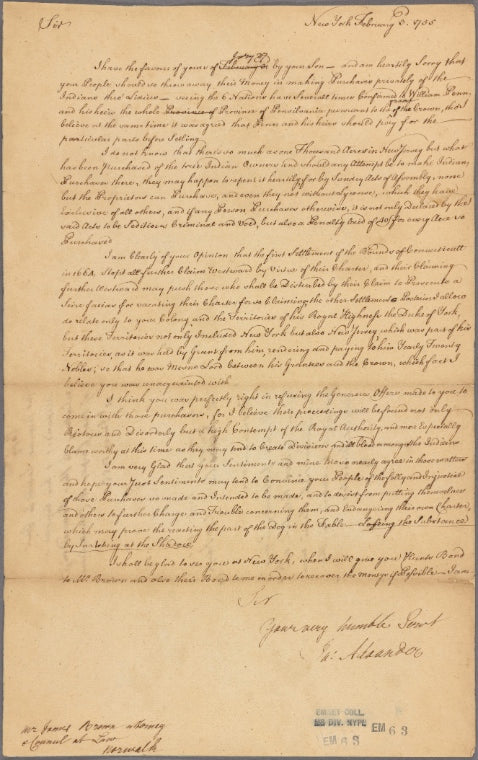 Sir
New York February 3. 1755
I have the favour of yours of January 27 by your Son — and am heartily Sorry that
your People should so throw away their Money in making Purchases privately of the
Indians their Limits — seeing the 6 Nations have Several times Confirmed to William Penn
and his heirs the whole Province of Pensilvania pursuant to the grant of the Crown, tho I
believe at the same time it was agreed that Penn and his heirs should pay for the
particular parts before Settling.
I do not know that there's so much as one Thousand Acres in New Jersey but what
has been Purchased of the true Indian Owners and should any Attempt be to make Indian
Purchases there, they may happen to repent it heartily for by Sundry Acts of Assembly, none
but the Proprietors can Purchase, and even they not without Lycence, which they have
Exclusive of all others, and if any Person Purchase otherwise, it is not only declared by the
said Acts to be Seditious Criminal and Void, but also a Penalty Laid of 40/ for every Acre so
Purchased
I am Clearly of your Opinion that the first Settlement of the Bounds of Connecticutt
in 1664 Stopt all further Claim Westward by Virtue of their Charter, and their Claiming
further Westward may push those who shall be Disturbed by their Claim to Prosecute a
Scire facias for vacating their Charter for so Claiming the other Settlements Pretain'd alloco
do relate only to your Colony and the Territories of his Royal Highness the Duke of York,
but these Territories not only Included New York but also New Jersey which was part of his
Territories, as it was held by Grant from him, rendering and paying to him Yearly Twenty
Nobles; so that he was Mesne Lord between his Grantees and the Crown, which fact I
believe you was unacquainted with
I think you was perfectly right in refusing the Generous Offers made to you to
come in with those purchasers, for I believe those proceedings will be found not Only
Riotous and Disorderly but a high Contempt of the Royal Authority, and more Especially
blameworthy at this time as they may tend to Create Divisions and ill blood amongst the Indians
I am very Glad that your Sentiments and mine so nearly agree in those matters
and hope your Just Sentiments may tend to Convince your People of the folly and injustice
of those Purchases so made and Intended to be made, and to desist from putting themselves
and others to further Charge and Trouble concerning them, and Endangering their own Charter,
which may prove the reacting the part of the Dog in the Fable — Loosing the Substance
by Snatching at the Shadow
I shall be glad to see you at New York, when I will give you Vicents Bond
to Mr. Brown and also their Bond to me in order to recover the money if Possible — I am
Sir
Your very humble Servt
Ja: Alexander
Mr James Brown attorney
& Council at Law
Norwalk
EMMET COLL.
MS DIV. NYPL
EM 6 3
EM 6 3